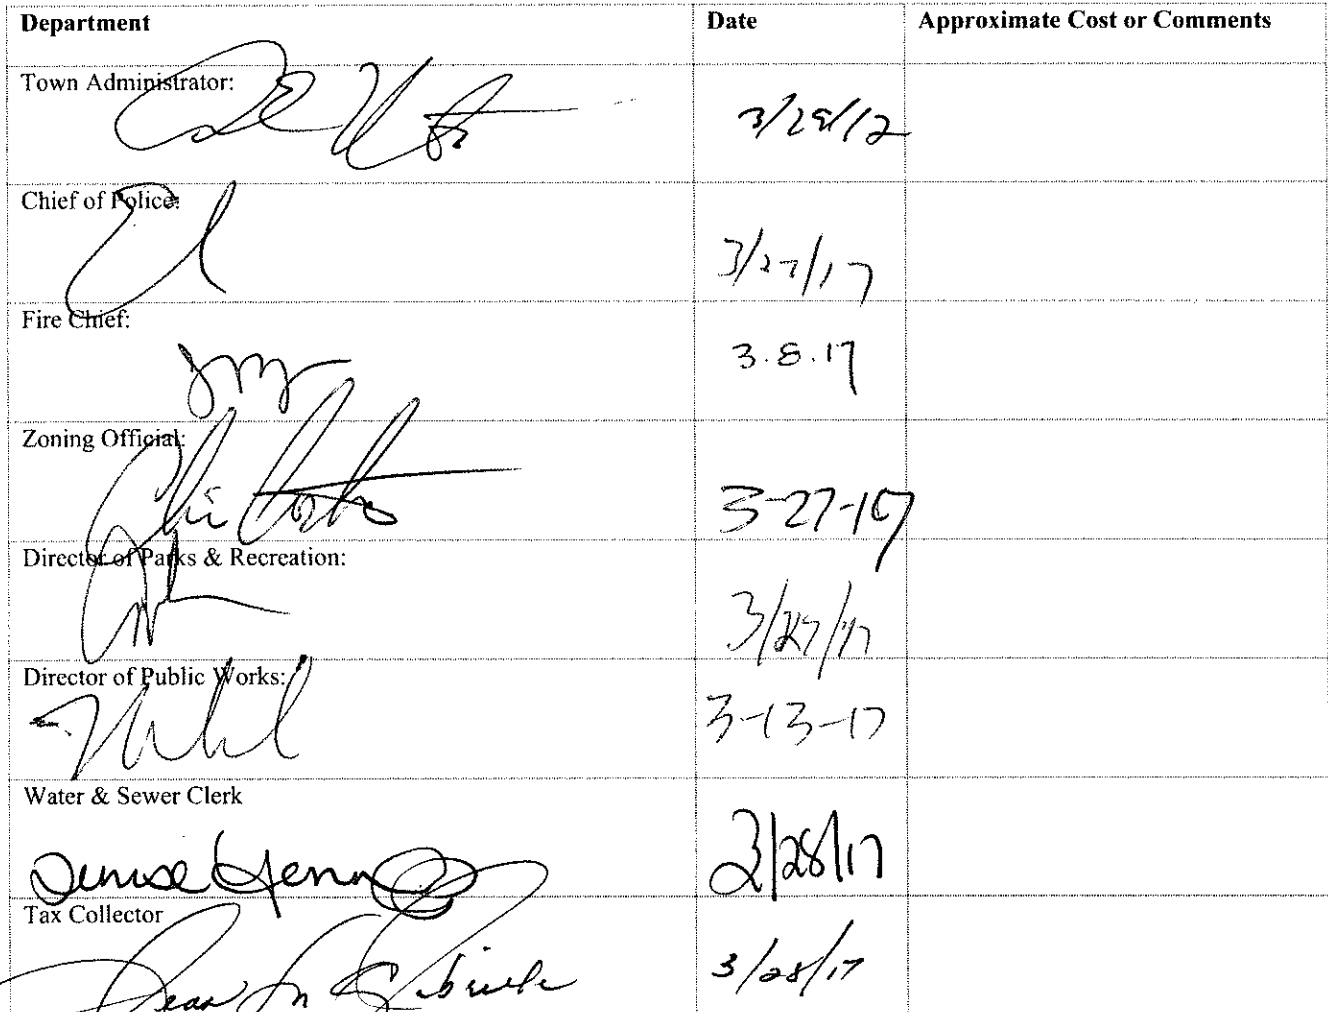 Department Date Approximate Cost or Comments
Town Administrator:
Chief of Police:
3/27/17
Fire Chief:
3.8.17
Zoning Official:
3-27-17
Director of Parks & Recreation:
3/27/17
Director of Public Works:
3-13-17
Water & Sewer Clerk
Denise 3/28/17
Tax Collector
3/28/17